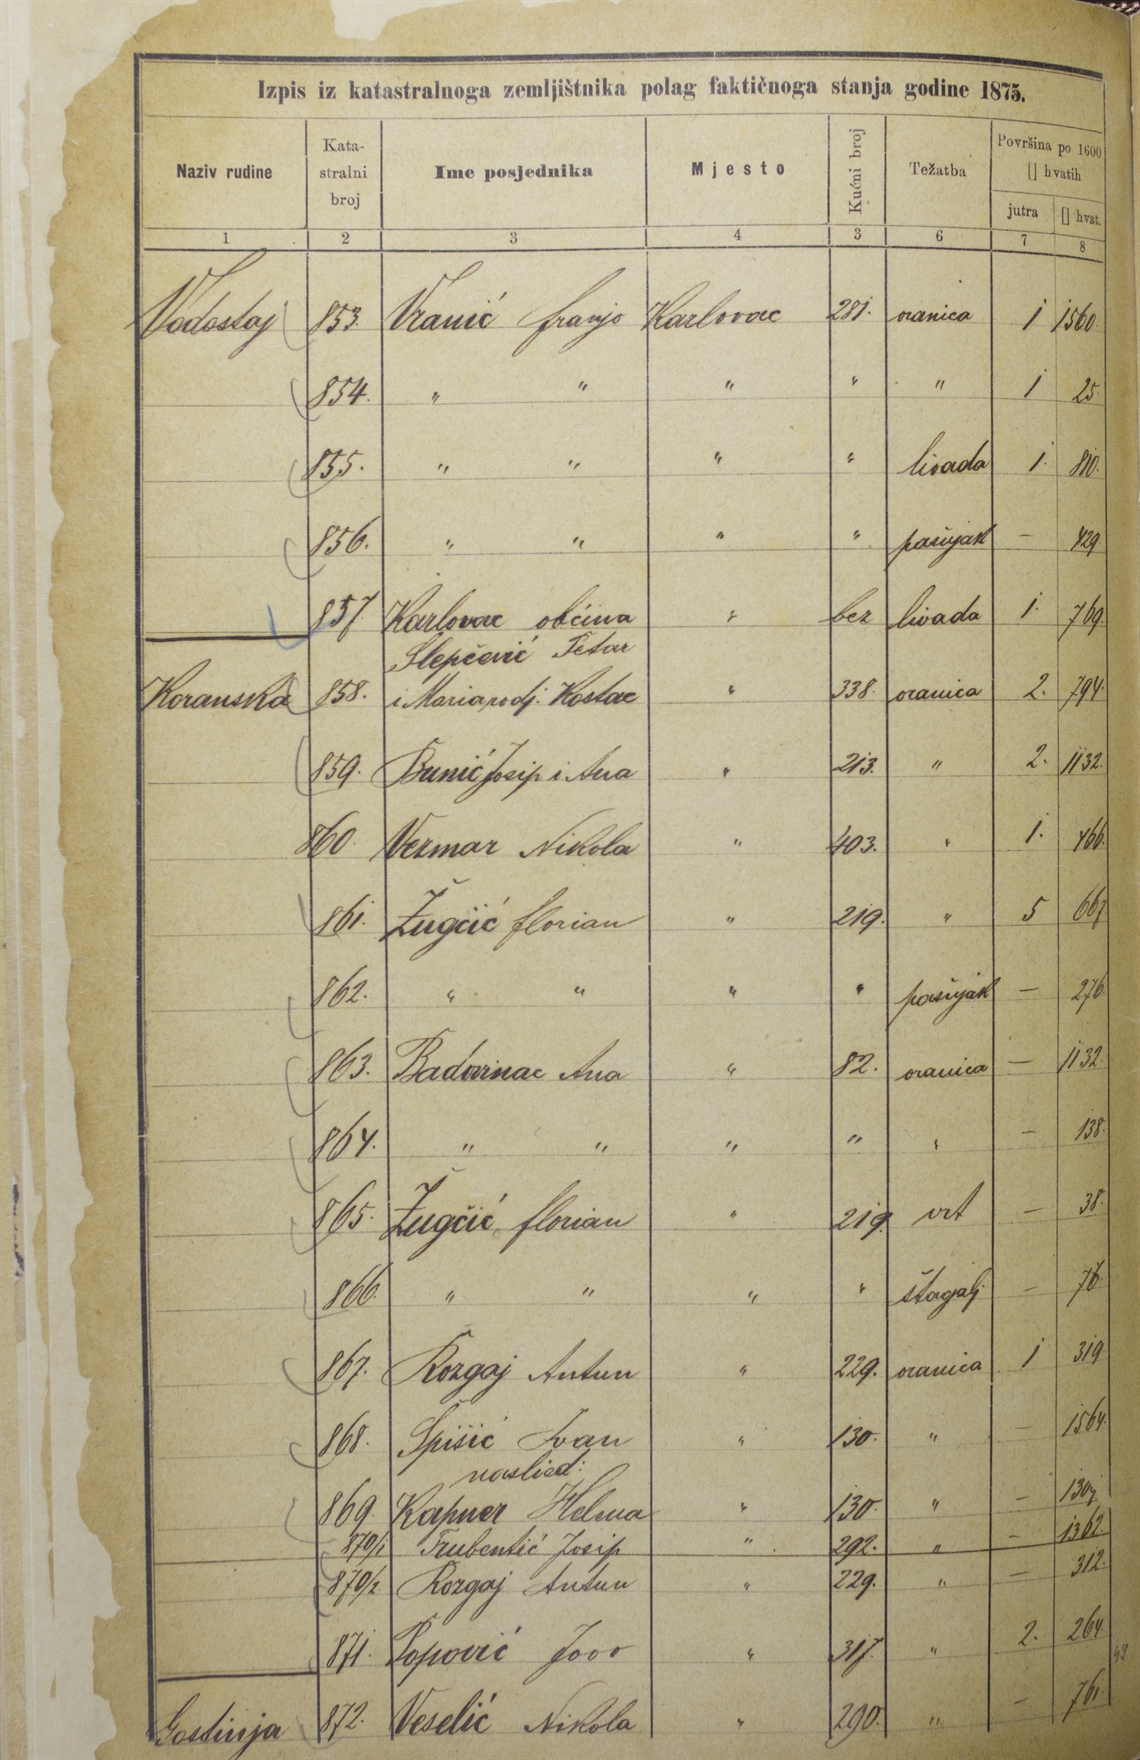 Izpis iz katastralnoga zemljištnika polag faktičnoga stanja godine 1875.
Naziv rudine Katastralni broj Ime posjednika Mjesto Kućni broj Težatba Površina po 1600 [] hvatih
jutra [] hvat.
1 2 3 4 3 6 7 8
Vodostaj 853. Vranić Franjo Karlovac 281. oranica 1 1560.
854. " " " " " 1 25
855. " " " " livada 1. 810.
856. " " " " pašnjak — 429
857 Karlovac občina " bez livada 1. 769
Slepčević Petar
Koranska 858. i Maria rodj. Kostac " 338. oranica 2. 794.
859. Bunić Josip i Ana " 213. " 2. 1132.
860. Vezmar Nikola " 403. " 1. 466.
861. Žugčić Florian " 219. " 5 667
862. " " " " pašnjak — 276
863. Badovinac Ana " 82. oranica — 1132.
864. " " " " " — 138.
865. Žugčić Florian " 219. vrt — 38.
866. " " " " štagalj — 76
867. Rozgaj Antun " 229. oranica 1 319
868. Spišić Ivan " 130. " — 1564.
naslied:
869. Kapner Helena " 130. " — 1307
870/1 Trubentić Josip " 292. " — 1362
870/2 Rozgaj Antun " 229. " — 312.
871. Popović Jovo " 317. " 2. 264.
43
Gostinja 872. Veselić Nikola " 290. " — 761.